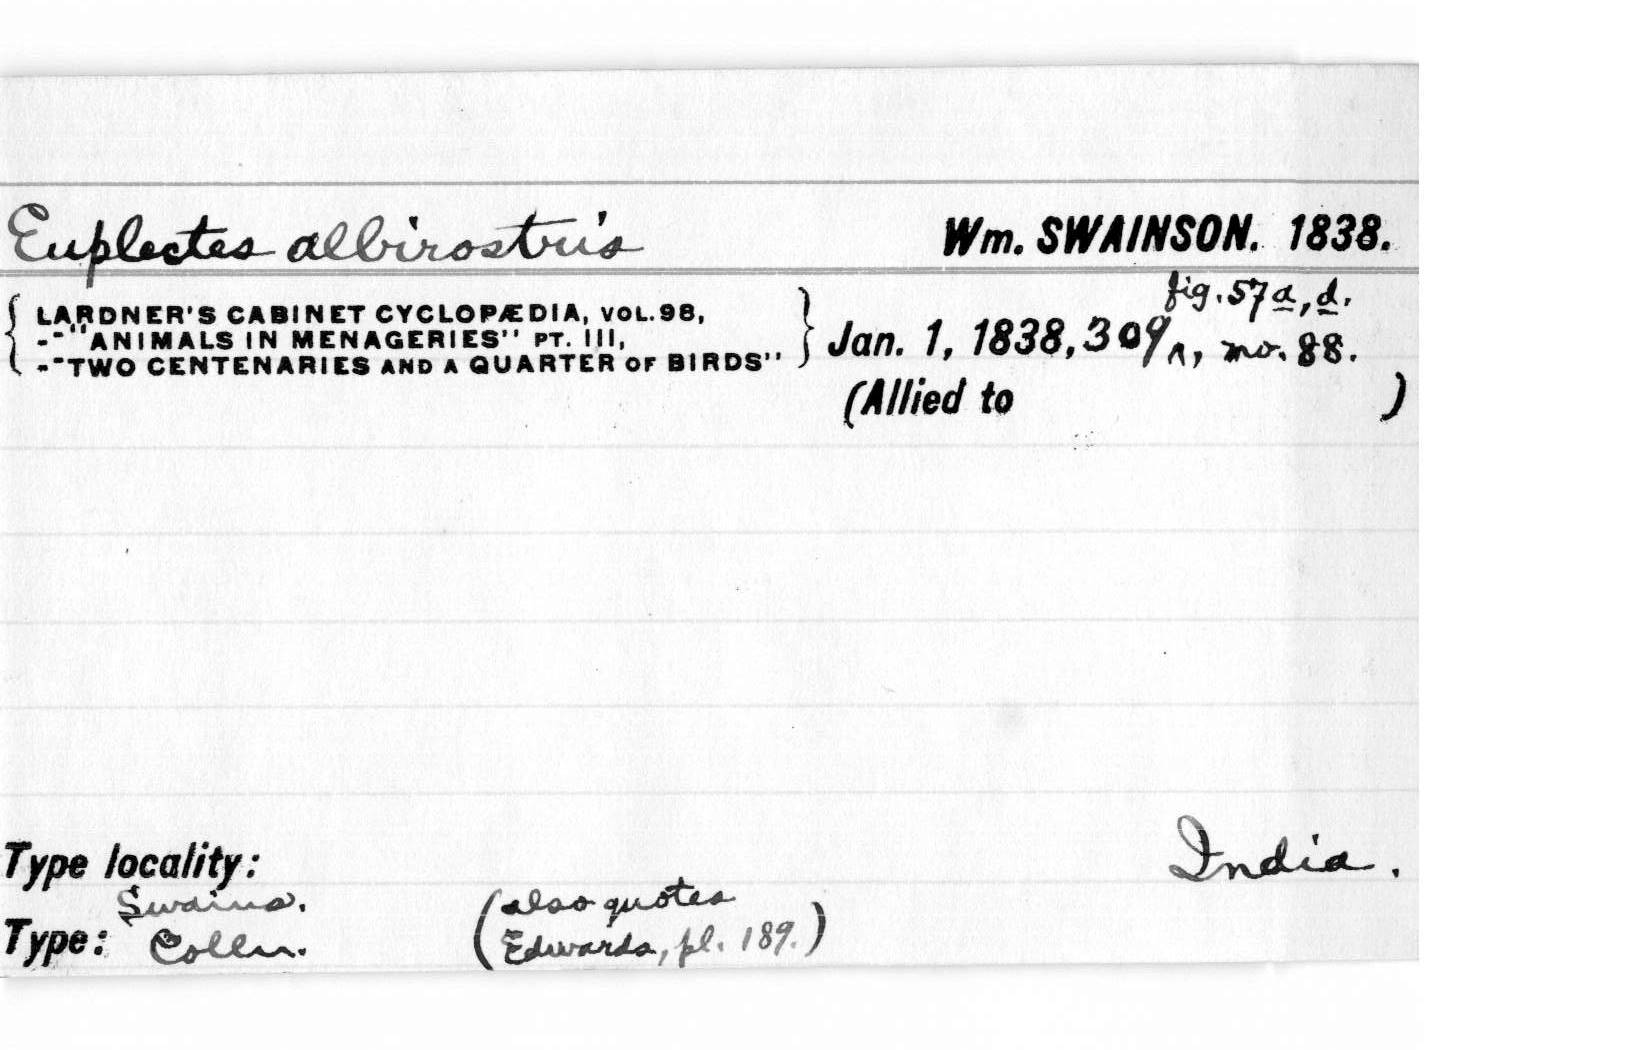 Euplectes albirostris Wm. SWAINSON. 1838.
fig. 57a, d.
{ LARDNER'S CABINET CYCLOPÆDIA, VOL. 98,
-- "ANIMALS IN MENAGERIES" PT. III,
--TWO CENTENARIES AND A QUARTER OF BIRDS" } Jan. 1, 1838, 309 ^, no. 88.
(Allied to )
Type locality: India.
Swains.
Type: Colln.
(also quotes
Edwards, pl. 189.)